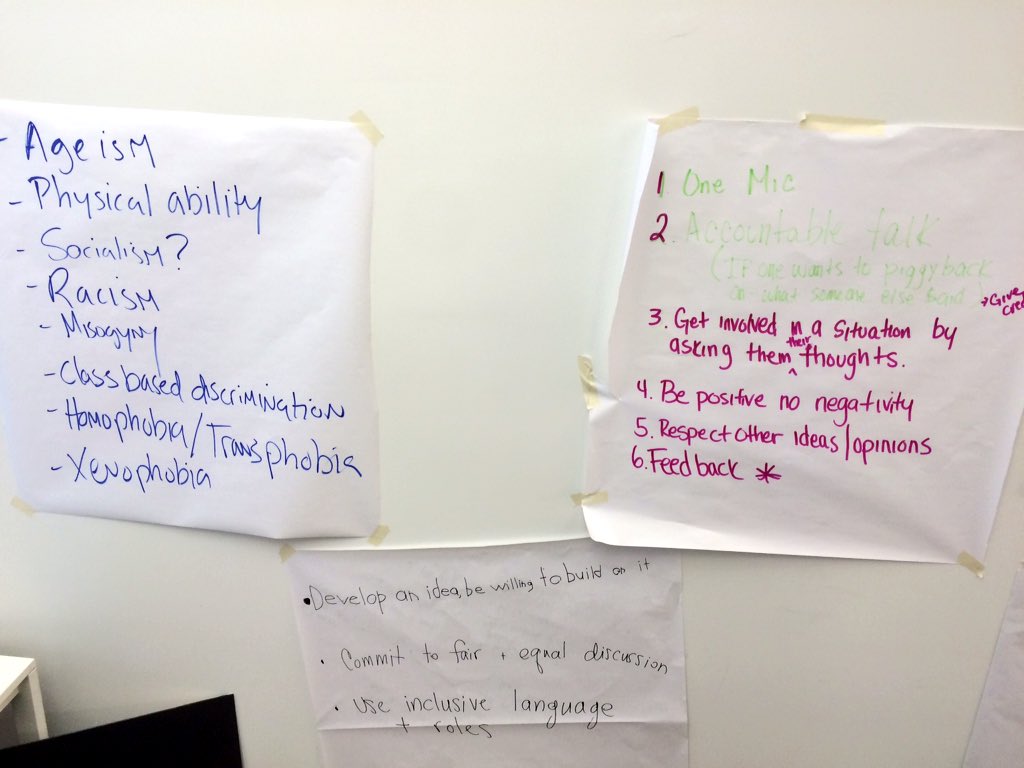 - Ageism
- Physical ability
- Socialism?
- Racism
- Misogyny
- Class based discrimination
- Homophobia/Transphobia
- Xenophobia
1 One Mic
2. Accountable talk
(If one wants to piggyback
on what someone else said
→ Give
cred
3. Get involved in a situation by
asking them their thoughts.
4. Be positive no negativity
5. Respect other ideas/opinions
6. Feedback *
• Develop an idea, be willing to build on it
• Commit to fair + equal discussion
• Use inclusive language
+ roles